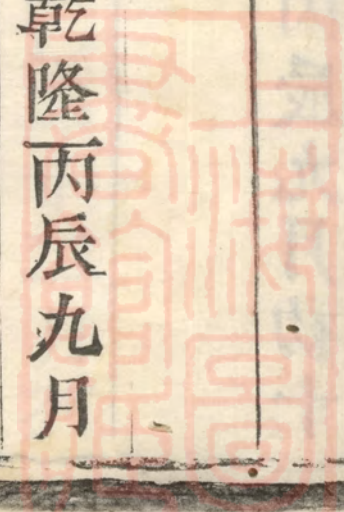 乾隆丙辰九月